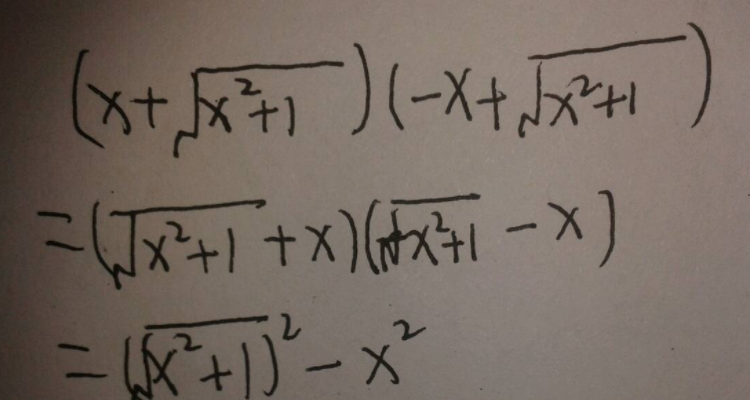 (x+√(x²+1))(-x+√(x²+1))
=(√(x²+1)+x)(√(x²+1)-x)
=(√(x²+1))²-x²